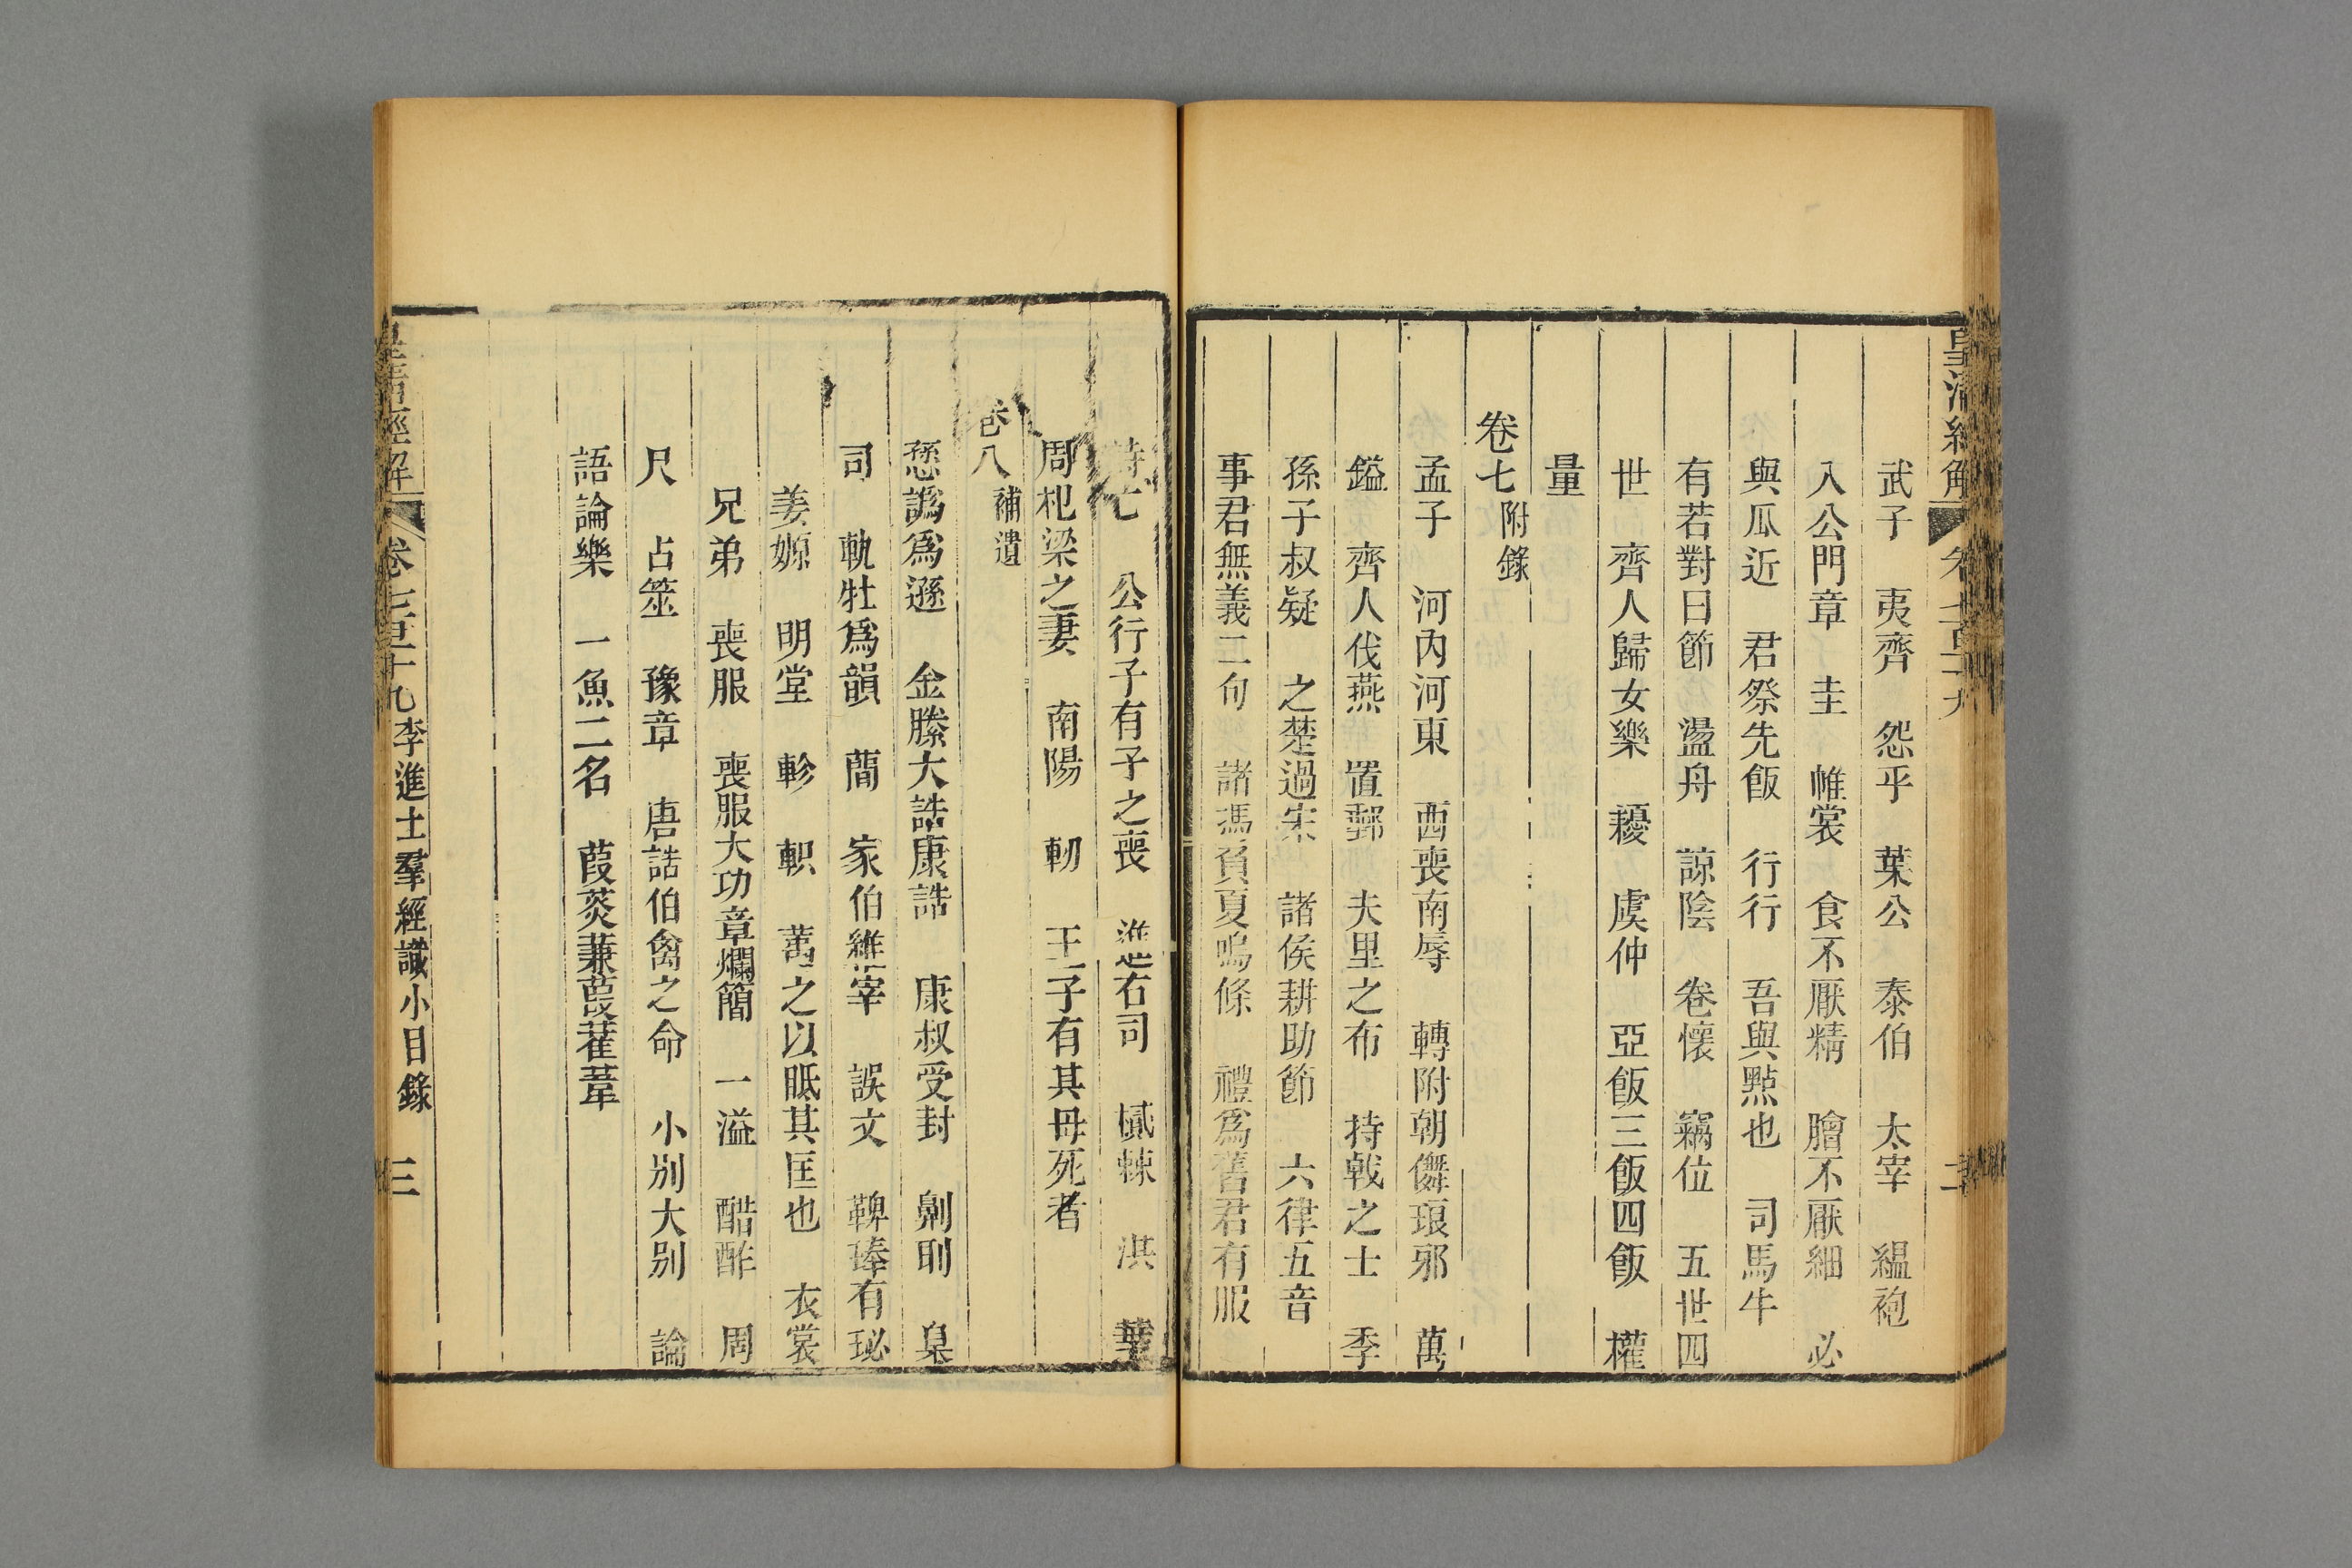 皇清經解 卷七百十九 二
武子 夷齊 怨乎 葉公 泰伯 太宰 縕袍
入公門章 圭 帷裳 食不厭精 膾不厭細 必
與瓜近 君祭先飯 行行 吾與點也 司馬牛
有若對曰節 盪舟 諒陰 卷懷 竊位 五世四
世 齊人歸女樂 耰 虞仲 亞飯三飯四飯 權
量
卷七附錄
孟子 河內河東 西喪南辱 轉附朝儛琅邪 萬
鎰 齊人伐燕 置郵 夫里之布 持戟之士 季
孫子叔疑 之楚過宋 諸侯耕助節 六律五音
事君無義二句 諸馮負夏鳴條 禮爲舊君有服
時七 公行子有子之喪 進右司 樲棘 淇 華
周杞梁之妻 南陽 軔 王子有其母死者
卷八補遺
愻譌爲遜 金縢大誥康誥 康叔受封 劓刵 臬
司 軌牡爲韻 蕑 家伯維宰 誤文 鞞琫有珌
姜嫄 明堂 軫 軹 萬之以眂其匡也 衣裳
兄弟 喪服 喪服大功章爛簡 一溢 酷酢 周
尺 占筮 豫章 唐誥伯禽之命 小別大別 論
語論樂 一魚二名 葭菼蒹葭萑葦
皇清經解 卷七百十九 李進士羣經識小目錄 三